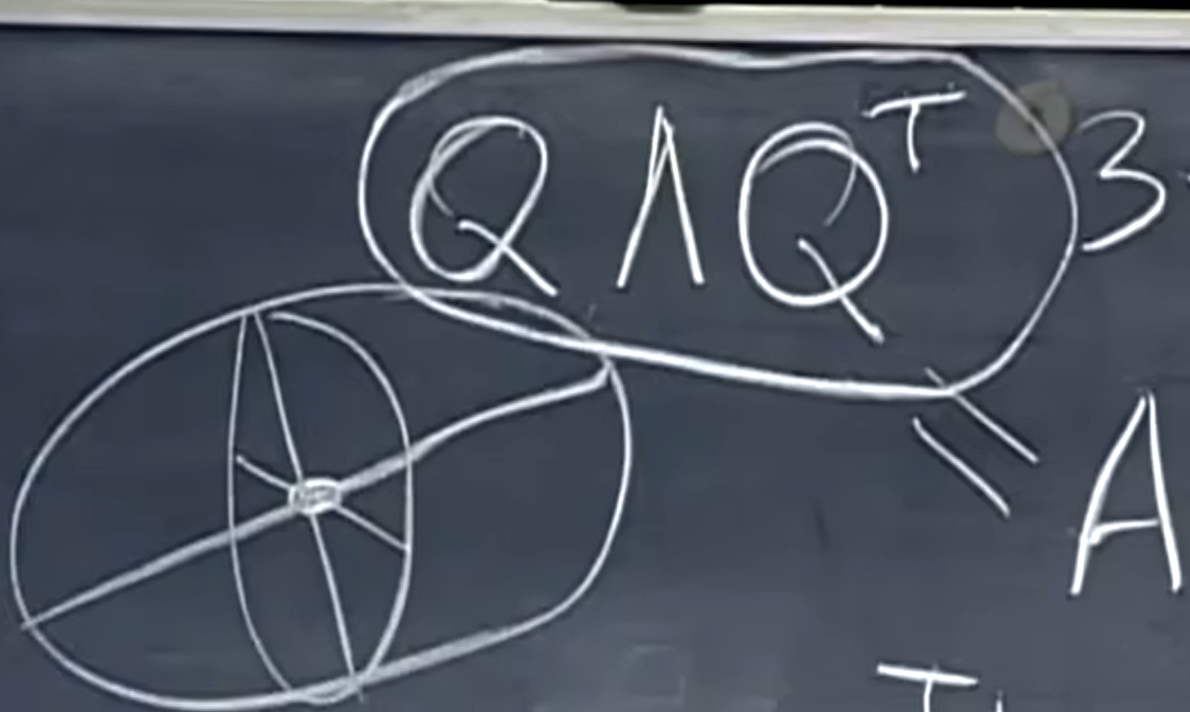 QΛQᵀ 3
= A
T